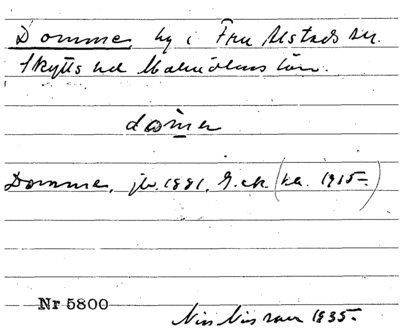 Domme by i Fru Alstads sn.
Skytts hd Malmöhus län.
Domme, jb. 1881, G.ek. (ka. 1915-)
Nr 5800
Nils Nilsson 1935.